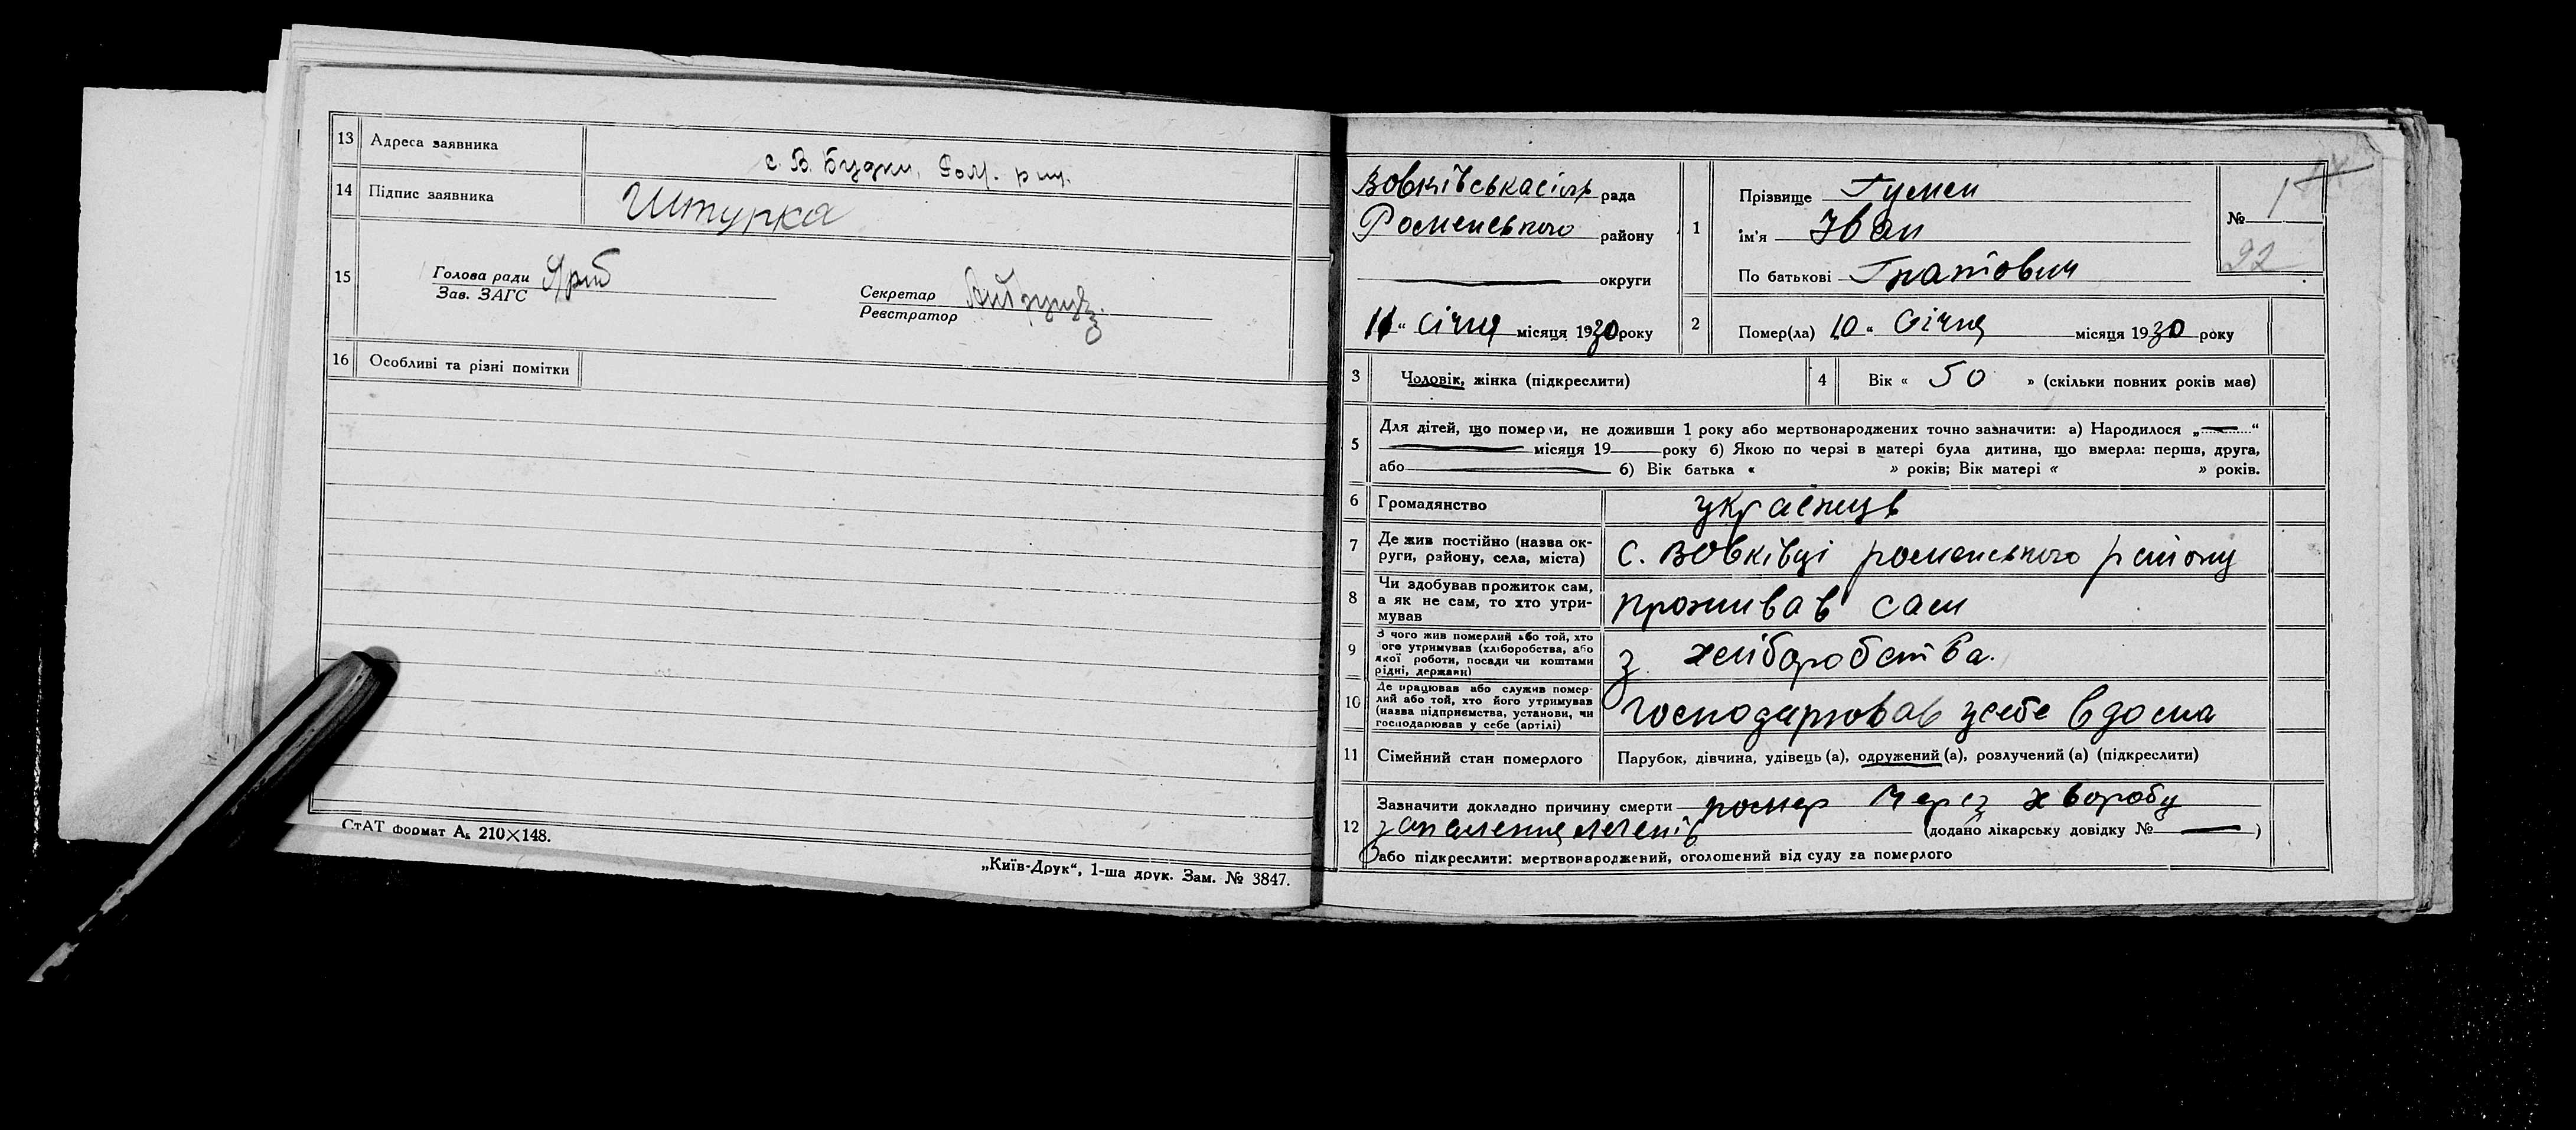 13 Адреса заявника с. В. Будки, Ром. рай.
14 Підпис заявника Штурка
15 Голова ради
Зав. ЗАГС
Секретар
Реєстратор
16 Особливі та різні помітки
СтАТ формат А₅ 210×148.
„Київ-Друк“, 1-ша друк. Зам. № 3847.
Вовківська сіль рада
Роменського району
округи
11 “ Січня місяця 1930 року
1 Прізвище Гумен
ім'я Іван
По батькові Гнатович
№ 1
92
2 Помер(ла) 10 “ Січня місяця 1930 року
3 Чоловік, жінка (підкреслити)
4 Вік « 50 » (скільки повних років мав)
5 Для дітей, що померли, не доживши 1 року або мертвонароджених точно зазначити: а) Народилося „ — “
— місяця 19 — року б) Якою по черзі в матері була дитина, що вмерла: перша, друга,
або — б) Вік батька « » років; Вік матері « » років.
6 Громадянство українець
7 Де жив постійно (назва ок-
руги, району, села, міста) с. Вовківці роменського району
8 Чи здобував прожиток сам,
а як не сам, то хто утри-
мував проживав сам
9 З чого жив померлий або той, хто
його утримував (хліборобства, або
якої роботи, посади чи коштами
рідні, держави) з хліборобства.
10 Де працював або служив помер-
лий або той, хто його утримував
(назва підприємства, установи, чи
господарював у себе (артілі) господарював усебе вдома
11 Сімейний стан померлого Парубок, дівчина, удівець (а), одружений (а), розлучений (а) (підкреслити)
12 Зазначити докладно причину смерти помер через хворобу
запалення легенів (додано лікарську довідку № — )
або підкреслити: мертвонароджений, оголошений від суду за померлого